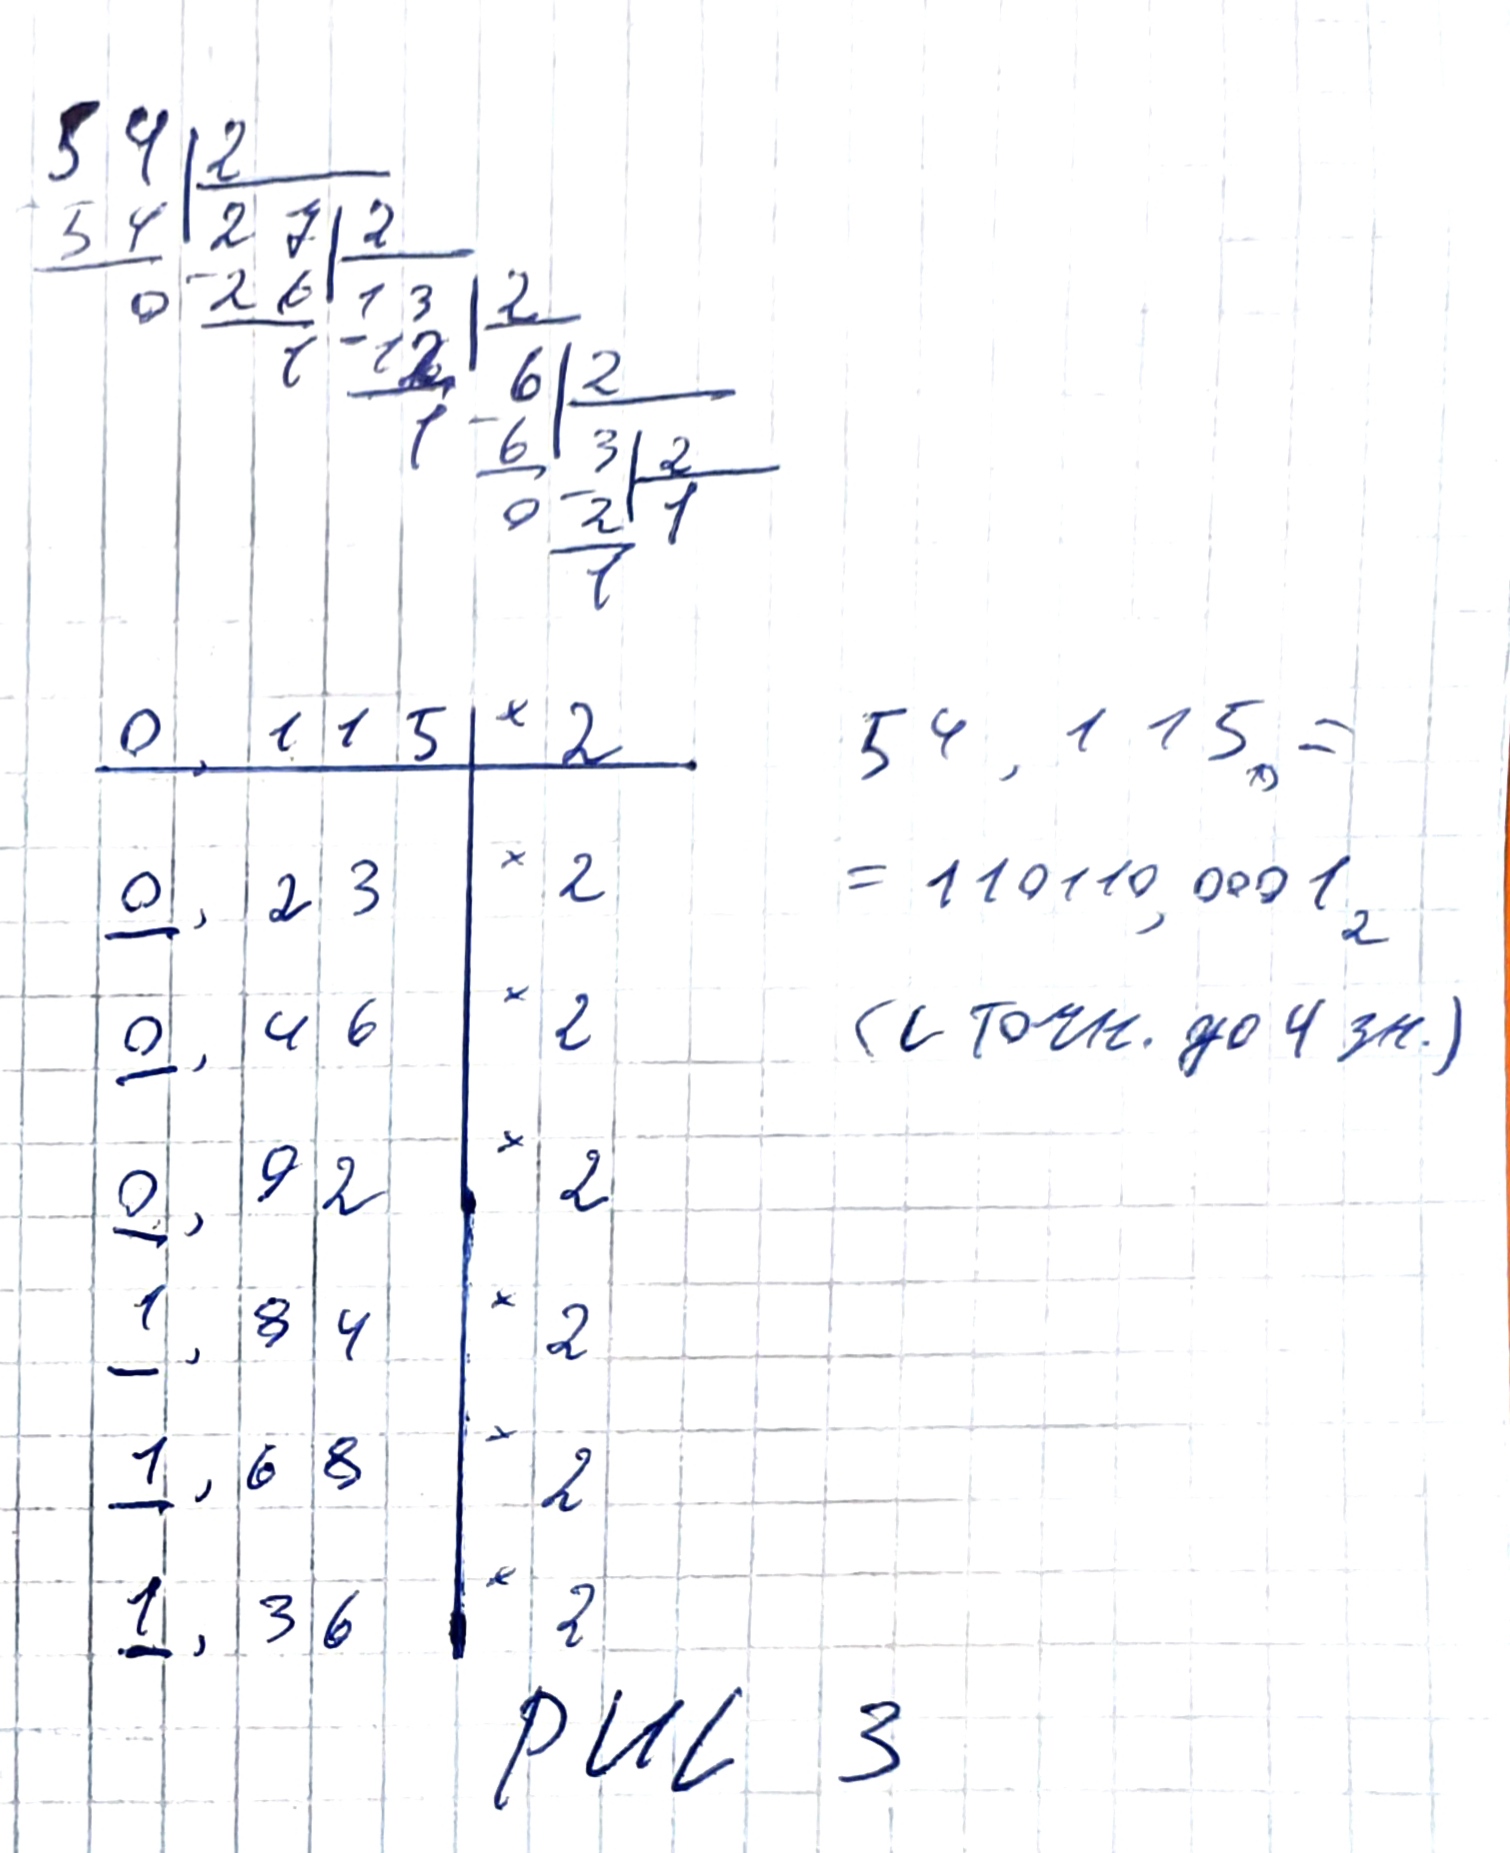 54 | 2
54 27 | 2
0 -26 13 | 2
1 -12 6 | 2
1 -6 3 | 2
0 -2 1
1
0,115 | × 2
0,23 × 2
0,46 × 2
0,92 × 2
1,84 × 2
1,68 × 2
1,36 × 2
54,115₁₀ =
= 110110,0001₂
(с точн. до 4 зн.)
рис 3